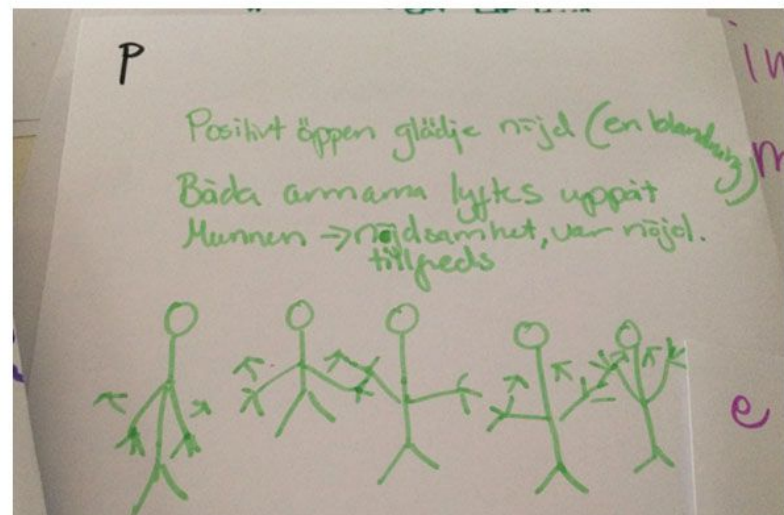 P
im
Positivt öppen glädje nöjd (en blandning)
m
Båda armarna lyftes uppåt
Munnen → nöjdsamhet, var nöjd.
tillfreds
e